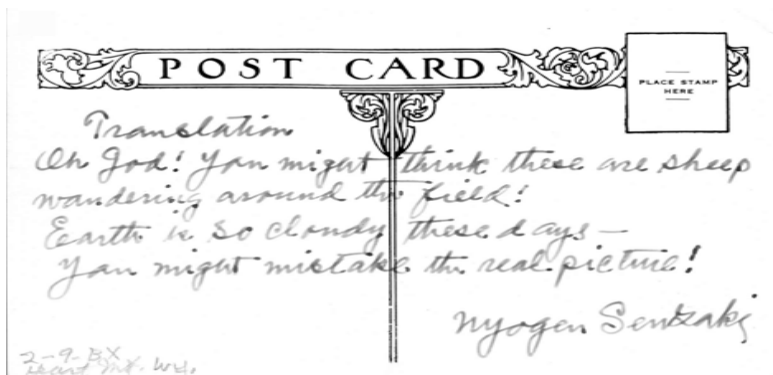 POST CARD
PLACE STAMP
HERE
Translation
Oh God! You might think these are sheep
wandering around the field!
Earth is so cloudy these days —
You might mistake the real picture!
Nyogen Senzaki
2-9-BX
Heart Mt. Wy.